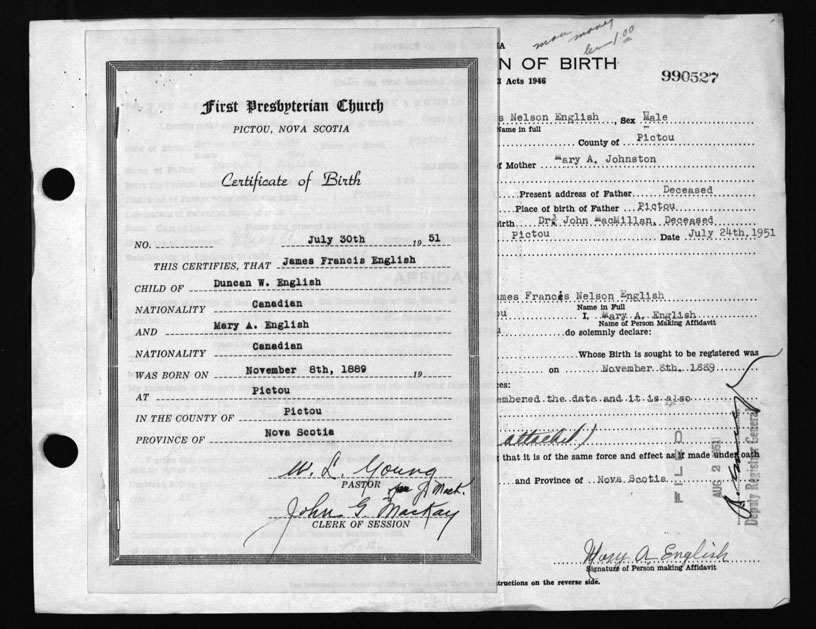 First Presbyterian Church
PICTOU, NOVA SCOTIA
Certificate of Birth
NO. July 30th 19 51
THIS CERTIFIES, THAT James Francis English
CHILD OF Duncan W. English
NATIONALITY Canadian
AND Mary A. English
NATIONALITY Canadian
WAS BORN ON November 8th, 1889 19
AT Pictou
IN THE COUNTY OF Pictou
PROVINCE OF Nova Scotia
W. L. Young
PASTOR per J Mack.
John G. MacKay
CLERK OF SESSION
money
1.00
N OF BIRTH
Acts 1946
990527
s Nelson English, Sex Male
Name in full
County of Pictou
of Mother Mary A. Johnston
Present address of Father Deceased
Place of birth of Father Pictou
irth Dr. John MacMillan, Deceased
Pictou Date July 24th, 1951
ames Francis Nelson English
Name in Full
ou I, Mary A. English
Name of Person Making Affidavit
do solemnly declare:
Whose Birth is sought to be registered was
on November 8th, 1889
ces:
embered the date and it is also
attached)
that it is of the same force and effect as if made under oath
and Province of Nova Scotia
FILED
AUG 2 1951
Deputy Registrar General
Mary A English
Signature of Person making Affidavit
structions on the reverse side.